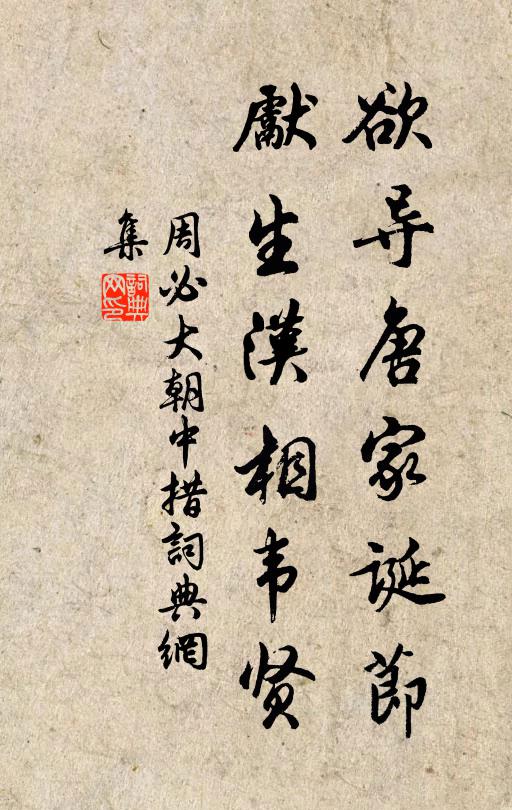 欲导唐家诞節
獻生漢相韦贤
周必大朝中措詞典網
集
詞典
网印